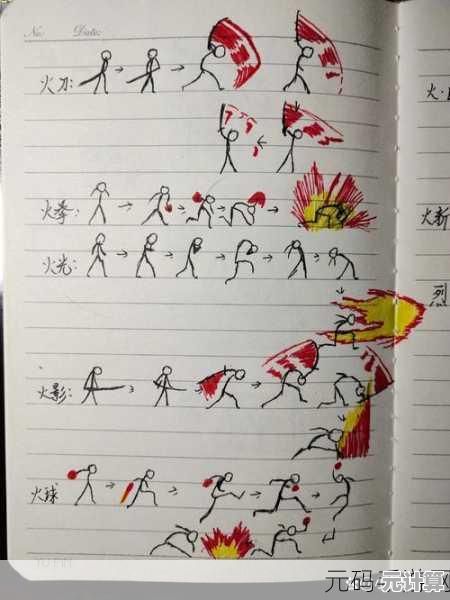 No:    Date:
火刀:
火拳:
火光:
火影:
火球
火·
火斩
烈
元码
元计算